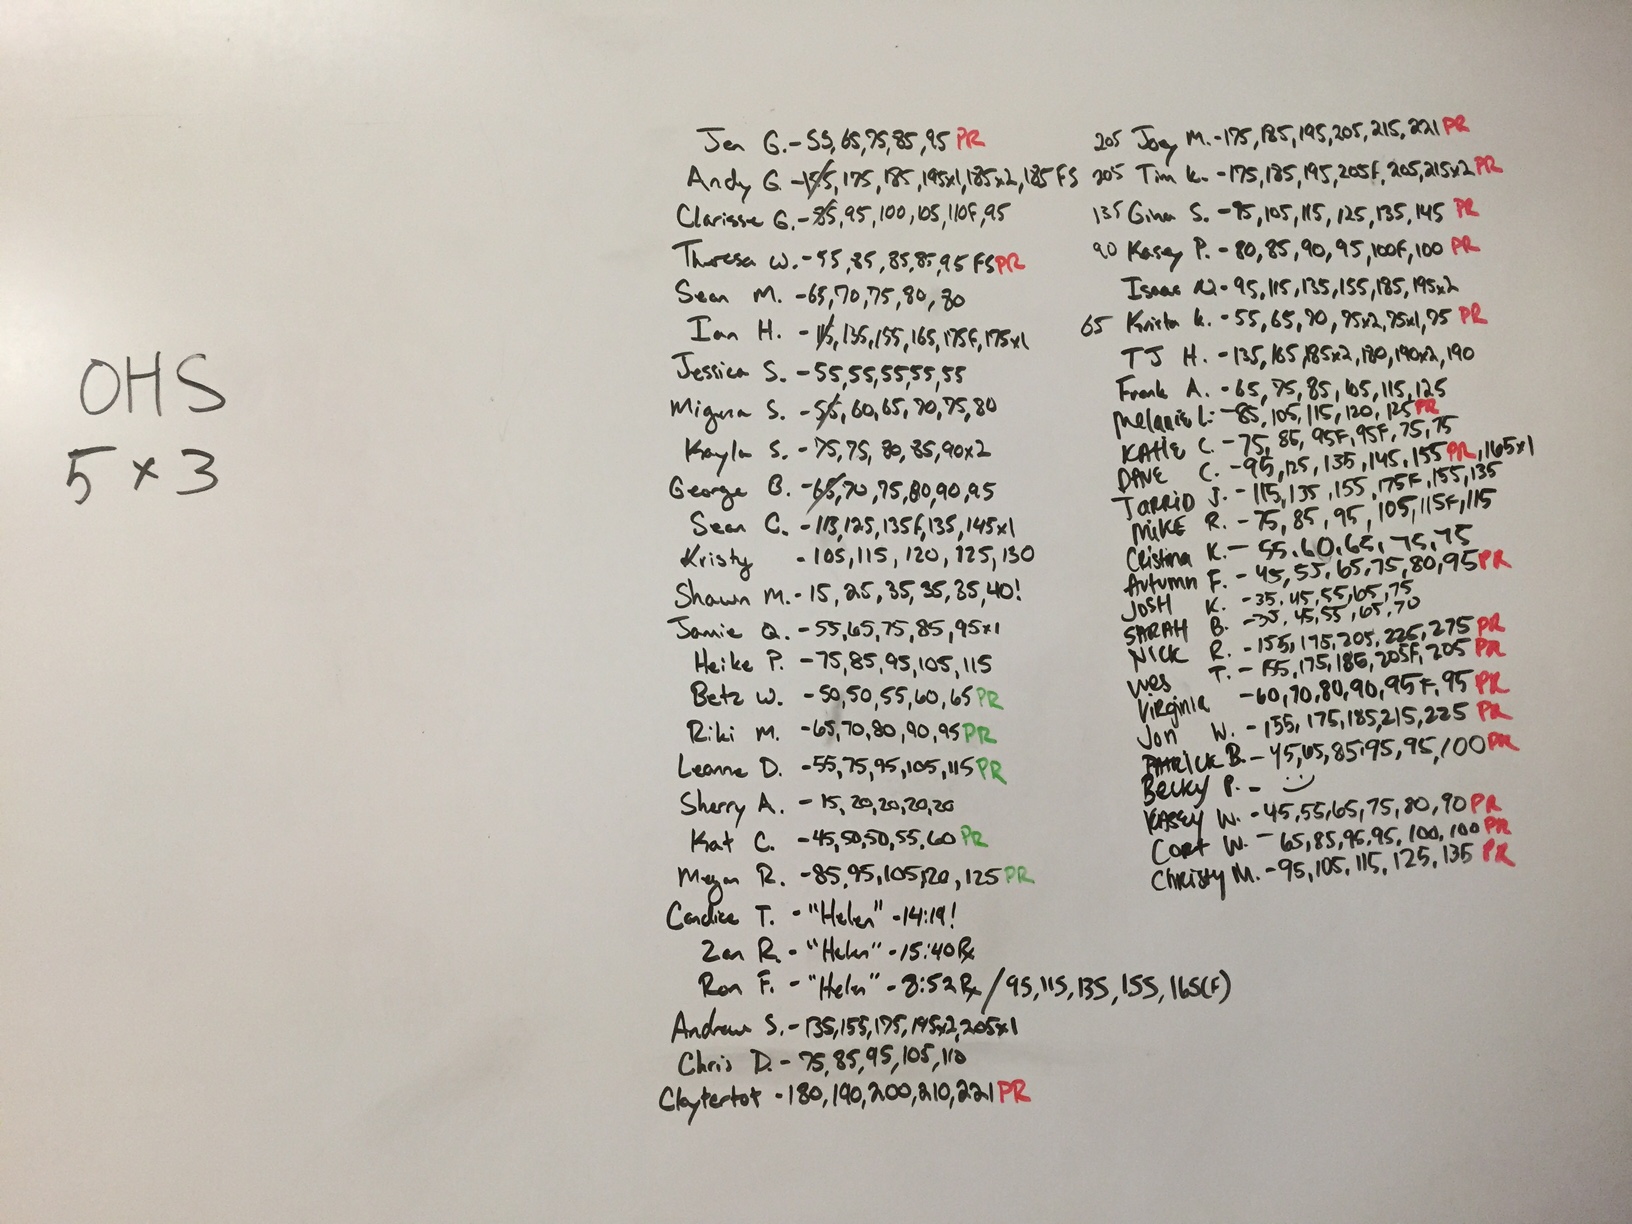 OHS
5 x 3
Jen G. - 55, 65, 75, 85, 95 PR
Andy G - 155, 175, 185, 195x1, 185x2, 185 FS
Clarisse G. - 85, 95, 100, 105, 110F, 95
Theresa W. - 55, 85, 85, 85, 95 FS PR
Sean M. - 65, 70, 75, 80, 80
Ian H. - 115, 135, 155, 165, 175F, 175x1
Jessica S. - 55, 55, 55, 55, 55
Miguna S. - 55, 60, 65, 70, 75, 80
Kayla S. - 75, 75, 80, 85, 90x2
George B. - 65, 70, 75, 80, 90, 95
Sean C. - 113, 125, 135F, 135, 145x1
Kristy - 105, 115, 120, 125, 130
Shawn M. - 15, 25, 35, 35, 35, 40!
Jamie Q. - 55, 65, 75, 85, 95x1
Heike P. - 75, 85, 95, 105, 115
Betz W. - 50, 50, 55, 60, 65 PR
Riki M. - 65, 70, 80, 90, 95 PR
Leanne D. - 55, 75, 95, 105, 115 PR
Sherry A. - 15, 20, 20, 20, 20
Kat C. - 45, 50, 50, 55, 60 PR
Megan R. - 85, 95, 105, 120, 125 PR
Candice T. - "Helen" - 14:19!
Zan R. - "Helen" - 15:40 Rx
Ron F. - "Helen" - 8:52 Rx / 95, 115, 135, 155, 165(F)
Andrew S. - 135, 155, 175, 195x2, 205x1
Chris D. - 75, 85, 95, 105, 110
Claytertot - 180, 190, 200, 210, 221 PR
205 Joey M. - 175, 185, 195, 205, 215, 221 PR
205 Tim K. - 175, 185, 195, 205F, 205, 215x2 PR
135 Gina S. - 95, 105, 115, 125, 135, 145 PR
90 Kasey P. - 80, 85, 90, 95, 100F, 100 PR
Isaac - 95, 115, 135, 155, 185, 195x2
65 Krista K. - 55, 65, 70, 75x2, 75x1, 75 PR
TJ H. - 135, 165, 185x2, 180, 190x2, 190
Frank A. - 65, 75, 85, 105, 115, 125
Melanie L. - 85, 105, 115, 120, 125 PR
KATIE C. - 75, 85, 95F, 95F, 75, 75
DAVE C. - 95, 125, 135, 145, 155 PR, 165x1
JARRID J. - 115, 135, 155, 175F, 155, 135
MIKE R. - 75, 85, 95, 105, 115F, 115
Cristina K. - 55, 60, 65, 75, 75
Autumn F. - 45, 55, 65, 75, 80, 95 PR
JOSH K. - 35, 45, 55, 65, 75
SARAH B. - 35, 45, 55, 65, 70
NICK R. - 155, 175, 205, 225, 275 PR
Wes T. - 155, 175, 185, 205F, 205 PR
Virginia - 60, 70, 80, 90, 95F, 95 PR
Jon W. - 155, 175, 185, 215, 225 PR
PATRICK B. - 45, 65, 85, 95, 95, 100 PR
Becky P. - :)
KASEY W. - 45, 55, 65, 75, 80, 90 PR
Cort W. - 65, 85, 95, 95, 100, 100 PR
Christy M. - 95, 105, 115, 125, 135 PR